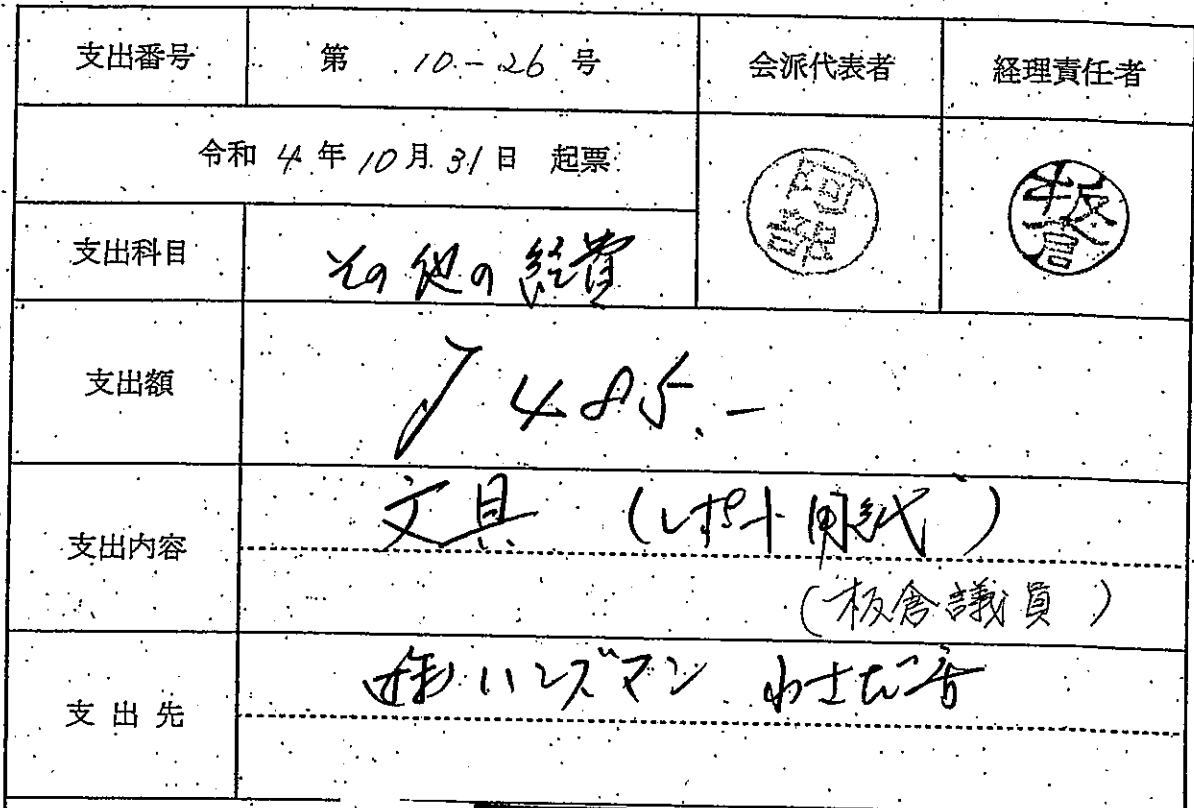 支出番号 第 10-26 号 会派代表者 経理責任者
令和 4 年 10 月 31 日 起票
阿部
板倉
支出科目 その他の経費
支出額 485.-
支出内容 文具 (レポート用紙)
(板倉議員)
支出先 ハンズマン わさだ店